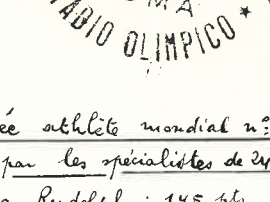 MA
TADIO OLIMPICO *
ée athlète mondial n°
par les spécialistes de 24
Rudolph : 145 pts